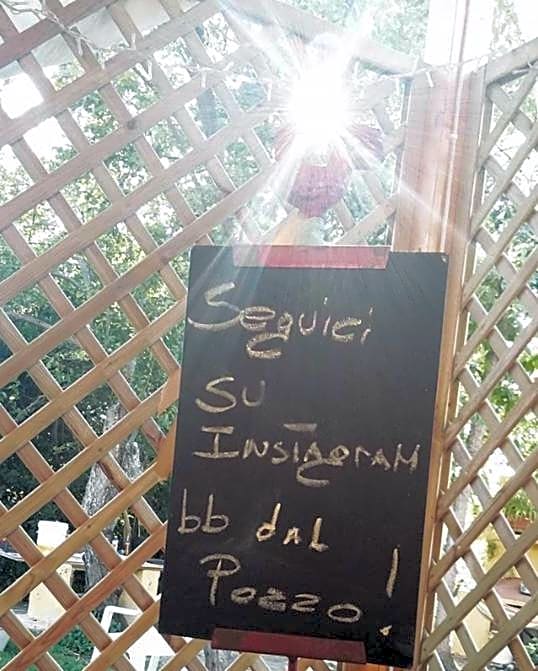 Seguici
SU
INSTAGRAM
bb dAL
Pozzo!